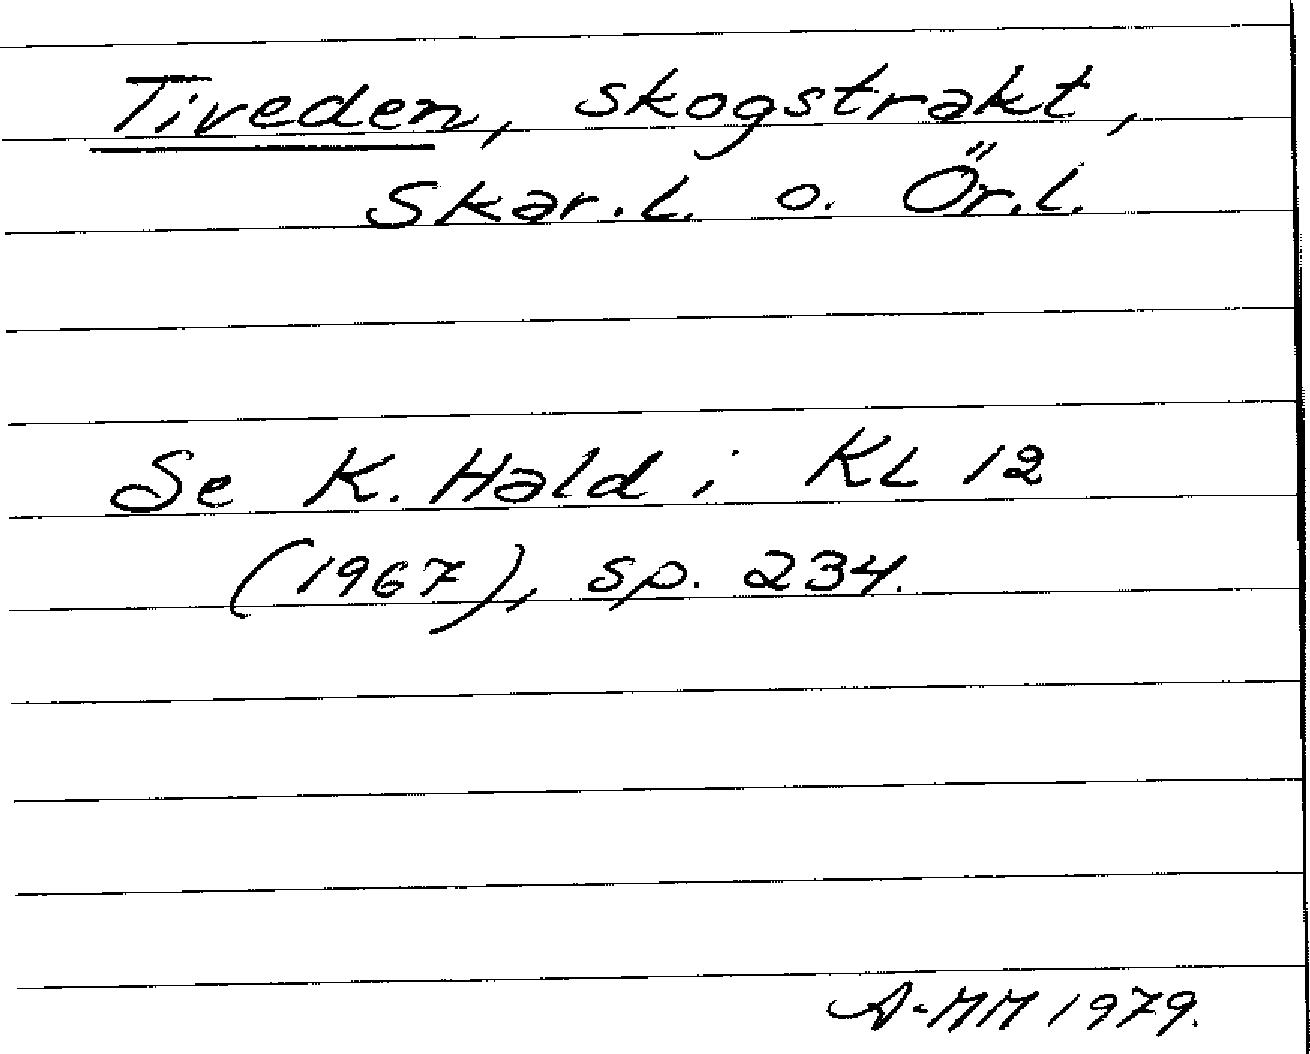 Tiveden, skogstrakt,
Skar.l. o. Ör.l.
Se K. Hald i KL 12
(1967), sp. 234.
A-MM 1979.